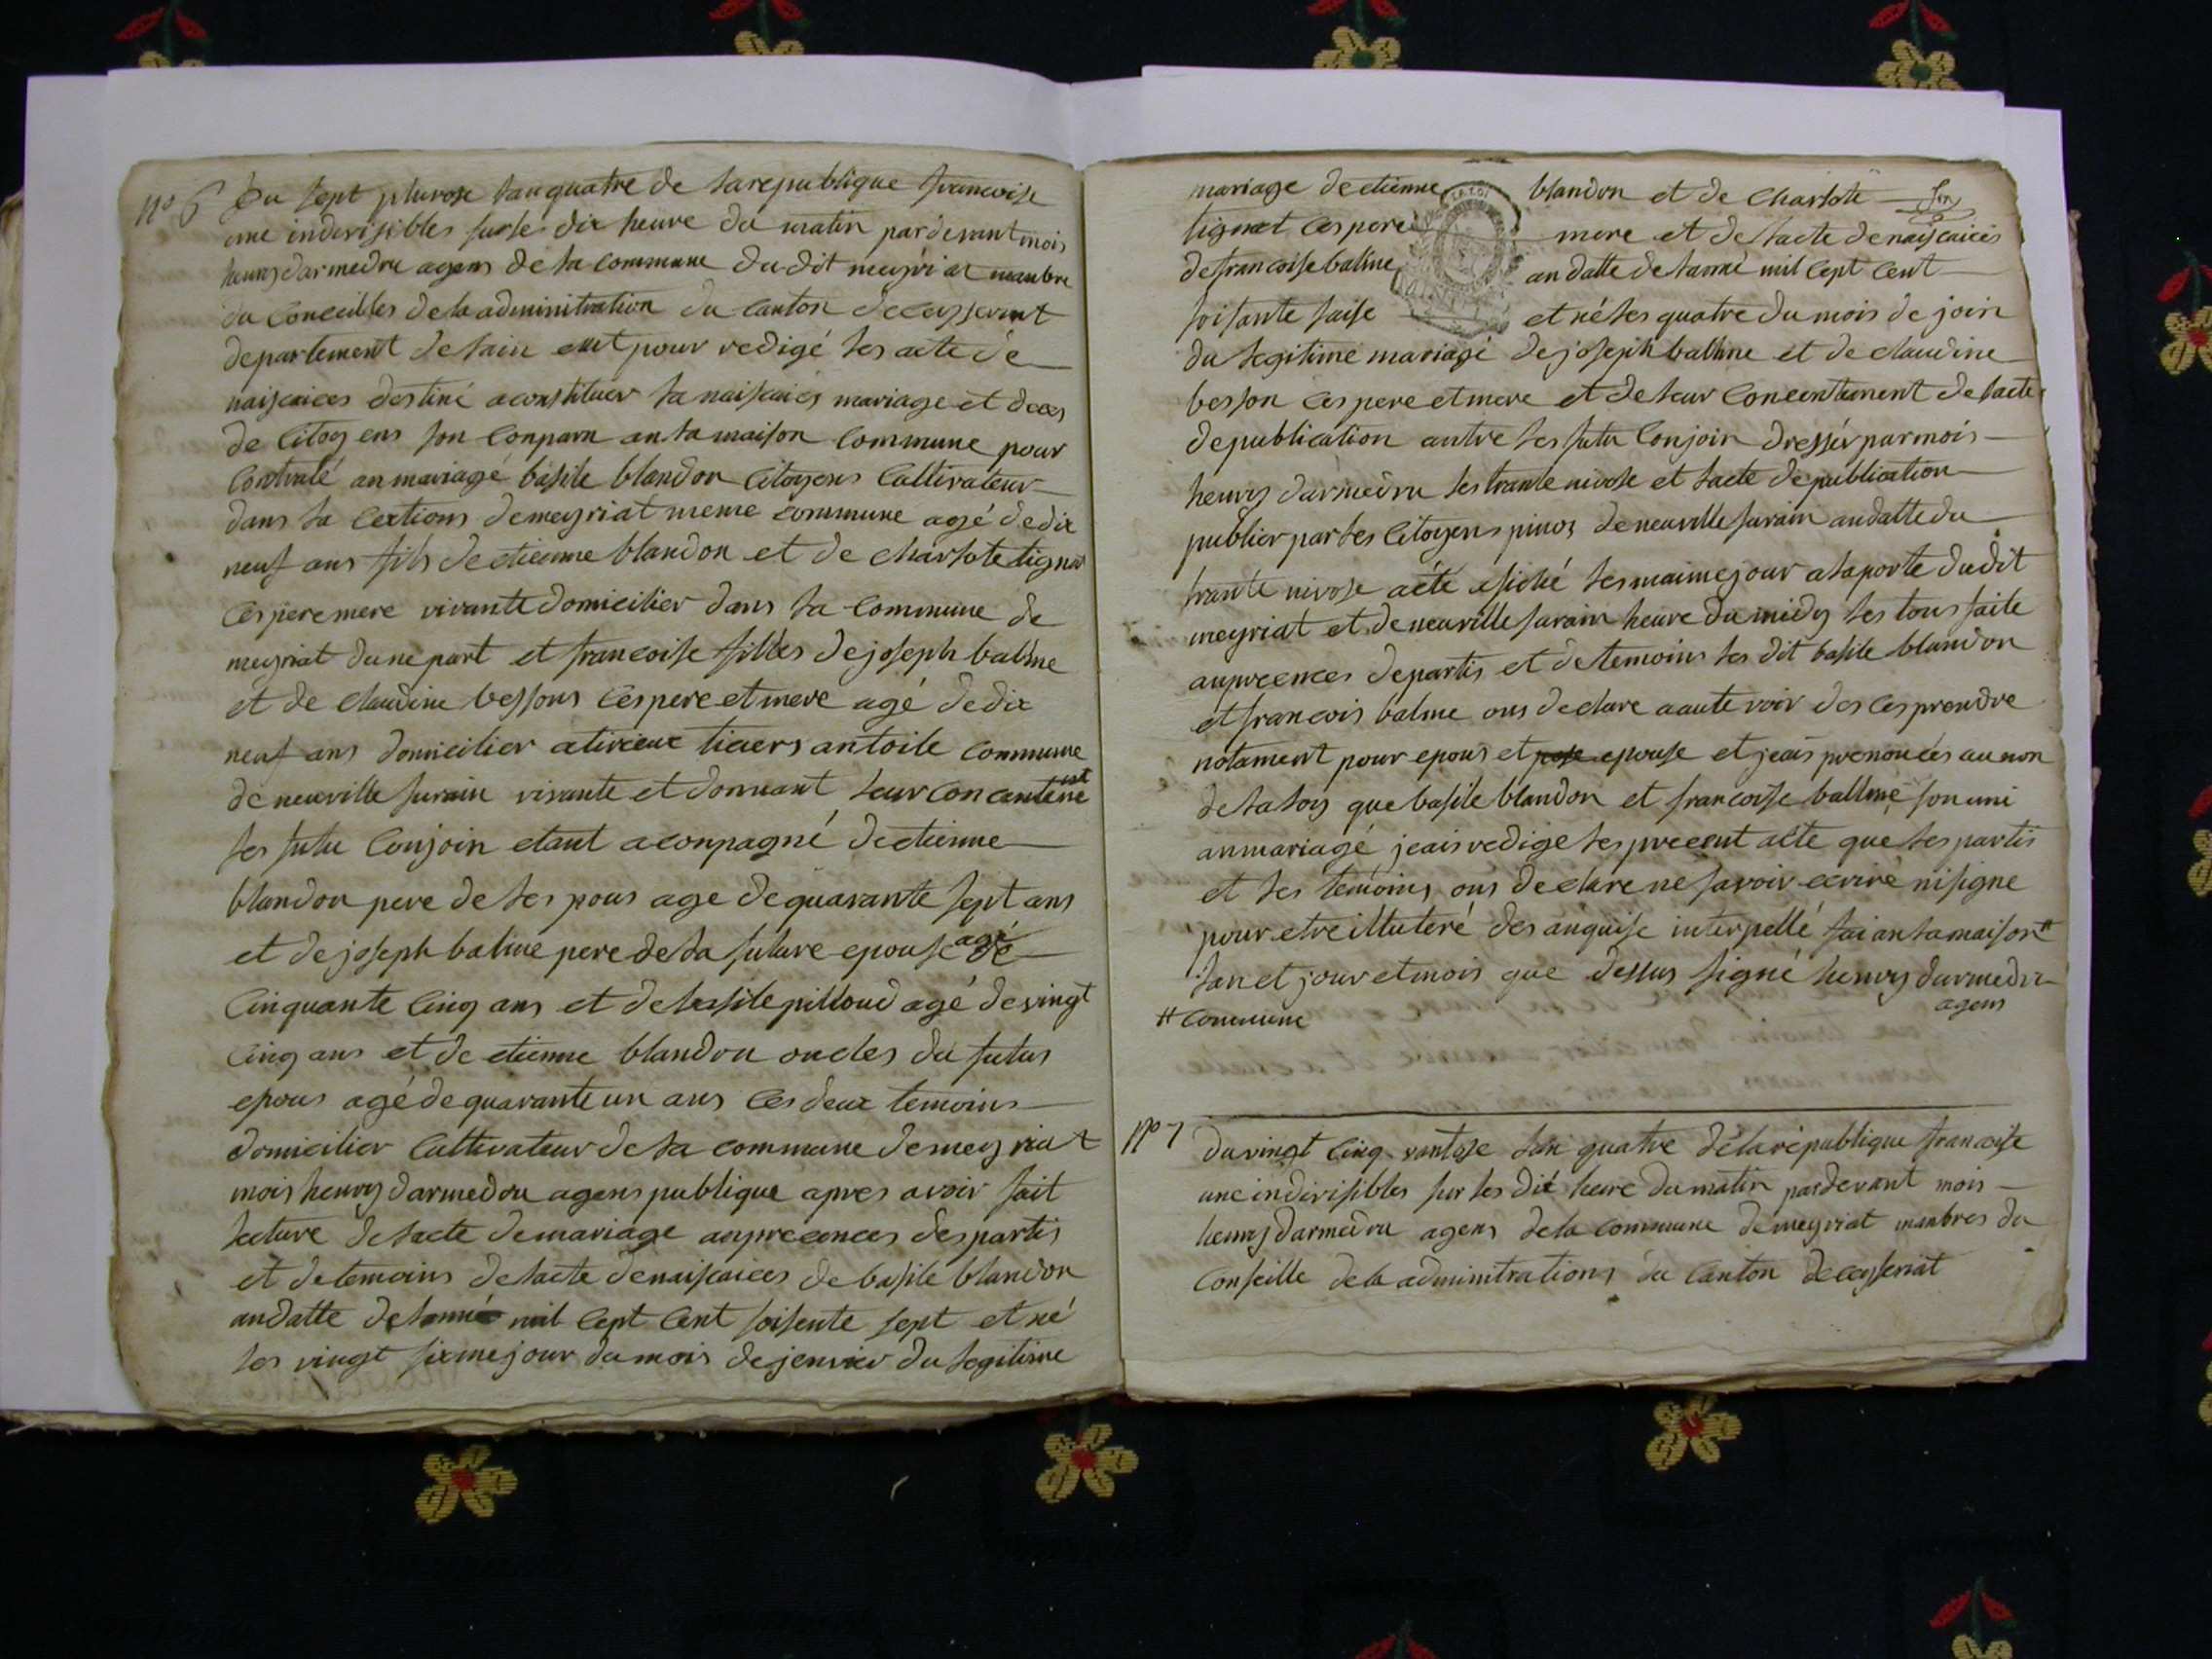 no 6 Du sept pluvose lan quatre de la republique francoise
une indivisibles sur les dix heure du matin par devant mois
henry darmedru agens de la commune du dit meyriat manbre
du Conceilles de la adminitration du Canton de ceysseriat
departement de lain eut pour redigé les acte de
naiscaices destiné a constituer la naiscaices mariage et deces
de Citoyens son Conparu an la maison Commune pour
Contraté an mariage basile blandon Citoyens Cultivateur
dans la Cections de meyriat meme commune agé de dix
neuf ans fils de etienne blandon et de charlote lignet
Ces pere mere vivante domicilier dans la Commune de
meyriat dune part et francoise filles de joseph balme
et de claudine bessons Ces pere et mere agé de dix
neuf ans domicilier antoile commune
de neuville surain vivante et donnant leur concantene
les futu Conjoin etant aconpagné de etienne
blandon pere de les pous age de quarante sept ans
et de joseph balme pere de la future epouse agé de
Cinquante Cinq ans et de basile pilloud agé de vingt
Cinq ans et de etienne blandon oncles du futus
epous agé de quarante un ans Ces deux temoins
domicilier Cultivateur de la commune de meyriat
mois henry darmedru agens publique apres avoir fait
lecture de lacte de mariage an precences des partis
et de temoins de lacte de naiscaices de basile blandon
an datte de lanné mil Cept Cent soisente sept et né
les vingt sixme jour du mois de jenvier du legitime
mariage de etienne blandon et de Charlote
lignet Ces pere mere et de lacte de naiscaices
de francoise balme an datte de lanné mil Cept Cent
soisante saise et né les quatre du mois de join
du legitime mariagé de joseph balme et de claudine
besson Ces pere et mere et de leur Concentement de lacte
de publication antre les futu Conjoin dressér par mois
henry darmedru les trante nivose et lacte de publication
publier par les Citoyens pinoz de neuville surain an datte du
trante nivose a été afiché les maime jour a la porte du dit
meyriat et de neuville surain heure du midy les tous faite
an precences de partis et de temoins les dit basile blandon
et francois balme ons declare a aute voir des Ces prendre
notament pour epous et epouse et jeais prenoncés au non
de la loy que basile blandon et francoise ballme son uni
an mariagé jeais redige les precent acte que les partis
et les temoins ons declare ne savoir ecrire ni signe
pour etre illuteré des anquise interpellé fai an la maison #
lan et jour et mois que dessus signé henry darmedru
agens
# Commune
no 7 du vingt Cinq vantose lan quatre de la république francoise
une indivisibles sur les dix heure du matin par devant mois
henry darmedru agens de la commune de meyriat manbres du
Conseille de la adminitrations du Canton de ceysseriat